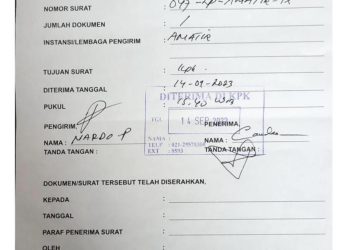 NOMOR SURAT :
JUMLAH DOKUMEN : 1
INSTANSI/LEMBAGA PENGIRIM : AMATIR
TUJUAN SURAT : KPK
DITERIMA TANGGAL : 14-09-2023
PUKUL : 15.40 WIB
DITERIMA DI KPK
TGL 14 SEP 2023
PENGIRIM
PENERIMA
NAMA : NARDO P
NAMA :
TANDA TANGAN :
TANDA TANGAN :
NAMA :
TELP : 021-25578300
EXT :
DOKUMEN/SURAT TERSEBUT TELAH DISERAHKAN,
KEPADA :
TANGGAL :
PARAF PENERIMA SURAT :
OLEH :